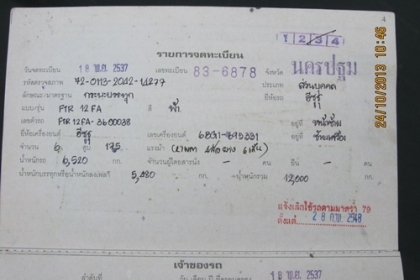 4
1 2 3 4
รายการจดทะเบียน
วันจดทะเบียน 18 พ.ย. 2537 เลขทะเบียน 83-6878 จังหวัด นครปฐม
รหัสตรวจสภาพ ประเภท ส่วนบุคคล
ลักษณะ/มาตรฐาน กระบะบรรทุก ยี่ห้อรถ อีซูซุ
แบบ/รุ่น FTR 12FA สี ฟ้า
เลขตัวรถ FTR12FA-3600038 อยู่ที่
ยี่ห้อเครื่องยนต์ อีซูซุ เลขเครื่องยนต์ อยู่ที่
จำนวน 6 สูบ 175 แรงม้า
น้ำหนักรถ 6,520 กก. จำนวนผู้โดยสารนั่ง - คน ยืน - คน
น้ำหนักบรรทุกหรือน้ำหนักลงเพลา 5,480 กก. น้ำหนักรวม 12,000 กก.
แจ้งเลิกใช้รถตามมาตรา 79
ตั้งแต่ 28 ก.ย. 2548
เจ้าของรถ
18 พ.ย. 2537
24/10/2013 10:45